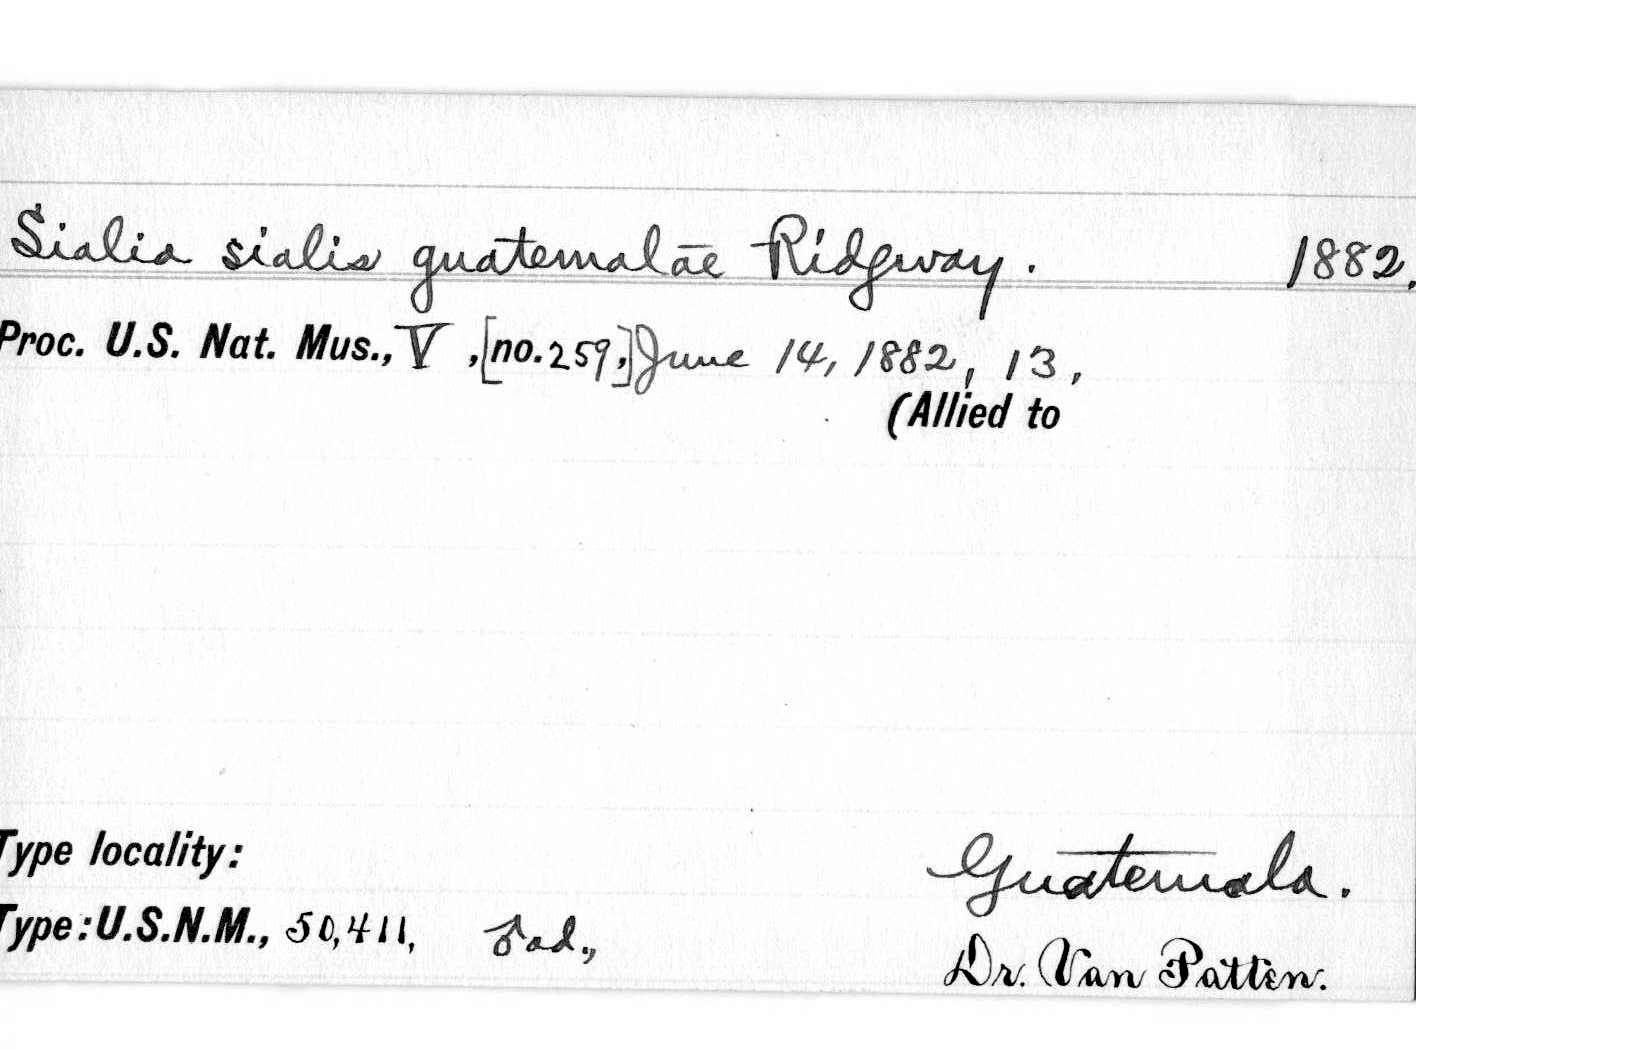 Sialia sialis guatemalae Ridgway. 1882.
Proc. U.S. Nat. Mus., V, [no. 259,] June 14, 1882, 13,
(Allied to
Type locality: Guatemala.
Type: U.S.N.M., 50,411, ♂ ad., Dr. Van Patten.